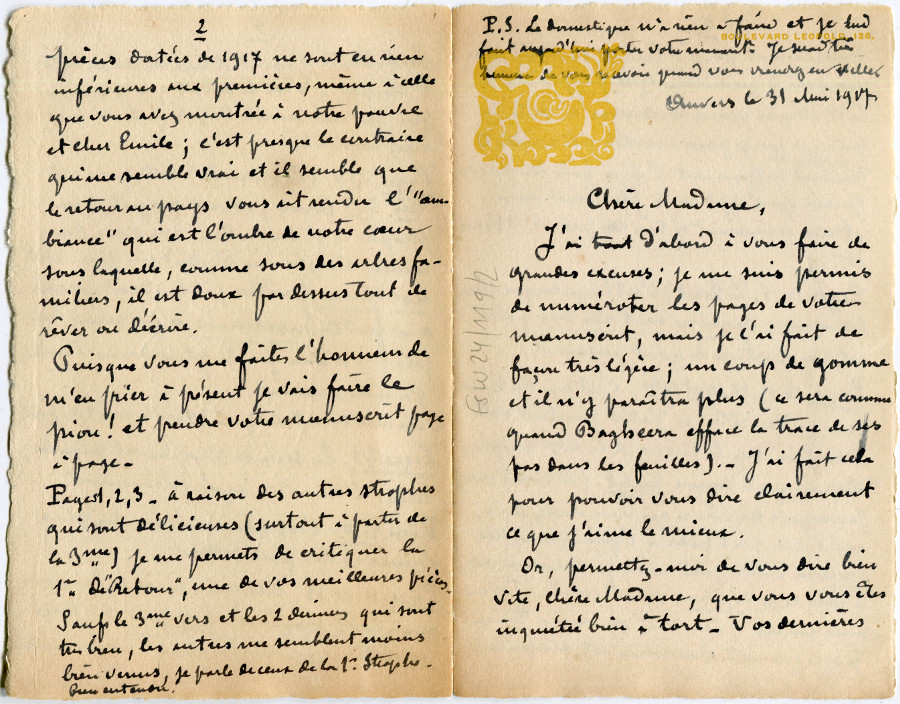 P.S. Le domestique n'a rien à faire et je lui
BOULEVARD LEOPOLD, 138.
fait aujourd'hui porter votre manuscrit. Je serai très
de vous recevoir quand vous viendrez en ville
Anvers le 31 Mai 1917
Chère Madame,
J'ai tout d'abord à vous faire de
grandes excuses; je me suis permis
de numéroter les pages de votre
manuscrit, mais je l'ai fait de
façon très légère; un coup de gomme
et il n'y paraîtra plus (ce sera comme
quand Bagheera efface la trace de ses
pas dans les feuilles). – J'ai fait cela
pour pouvoir vous dire clairement
ce que j'aime le mieux.
Or, permettez-moi de vous dire bien
vite, chère Madame, que vous vous êtes
inquiétée bien à tort – Vos dernières
FSW24/119/2
2
pièces datées de 1917 ne sont en rien
inférieures aux premières, même à celle
que vous avez montrée à notre pauvre
et cher Emile; c'est presque le contraire
qui me semble vrai et il semble que
le retour au pays vous ait rendu l'"am-
biance" qui est l'ombre de notre cœur
sous laquelle, comme sous des arbres fa-
miliers, il est doux par dessus tout de
rêver ou d'écrire.
Puisque vous me faites l'honneur de
m'en prier à présent je vais faire le
pion! et prendre votre manuscrit page
à page –
Pages 1, 2, 3 – à raison des autres strophes
qui sont délicieuses (surtout à partir de
la 3me) je me permets de critiquer la
1re de "Retour", une de vos meilleures pièces.
Sauf le 3me vers et les 2 derniers qui sont
très bien, les autres me semblent moins
bien venus, je parle de ceux de la 1re Strophe.
bien entendu.